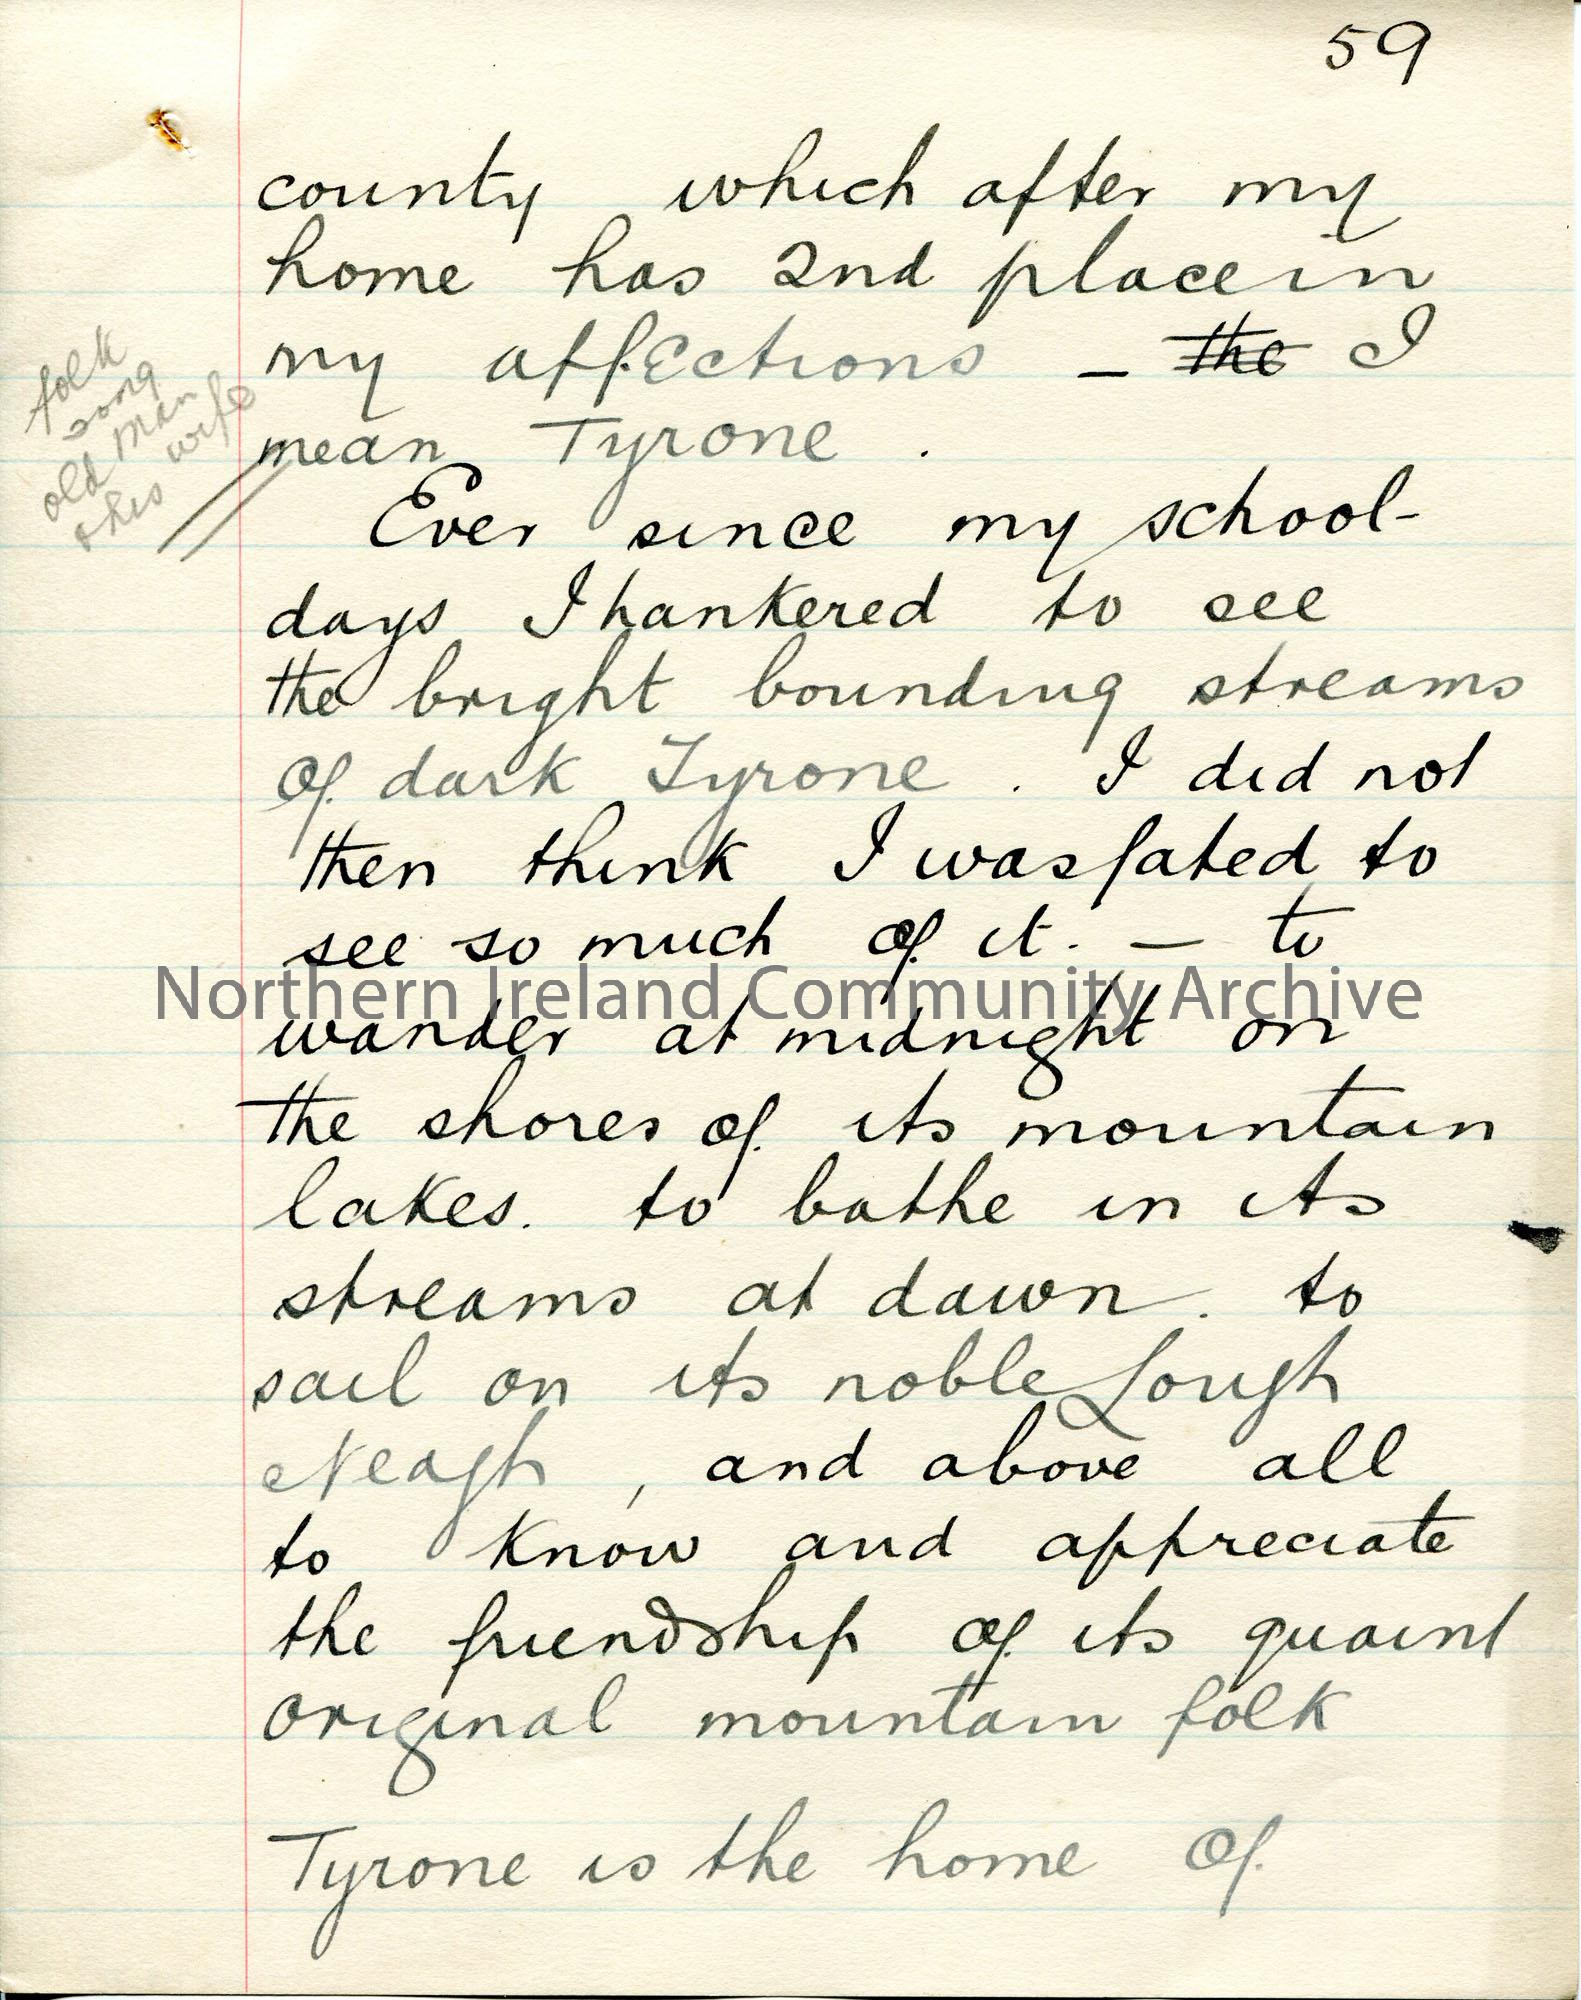 59
county which after my
home has 2nd place in
my affections – the I
mean Tyrone .
folk
song
old man
& his wife
Ever since my school-
days I hankered to see
the bright bounding streams
of dark Tyrone . I did not
then think I was fated to
see so much of it. – to
Northern Ireland Community Archive
wander at midnight on
the shores of its mountain
lakes. to bathe in its
streams at dawn . to
sail on its noble Lough
Neagh , and above all
to know and appreciate
the friendship of its quaint
original mountain folk
Tyrone is the home of